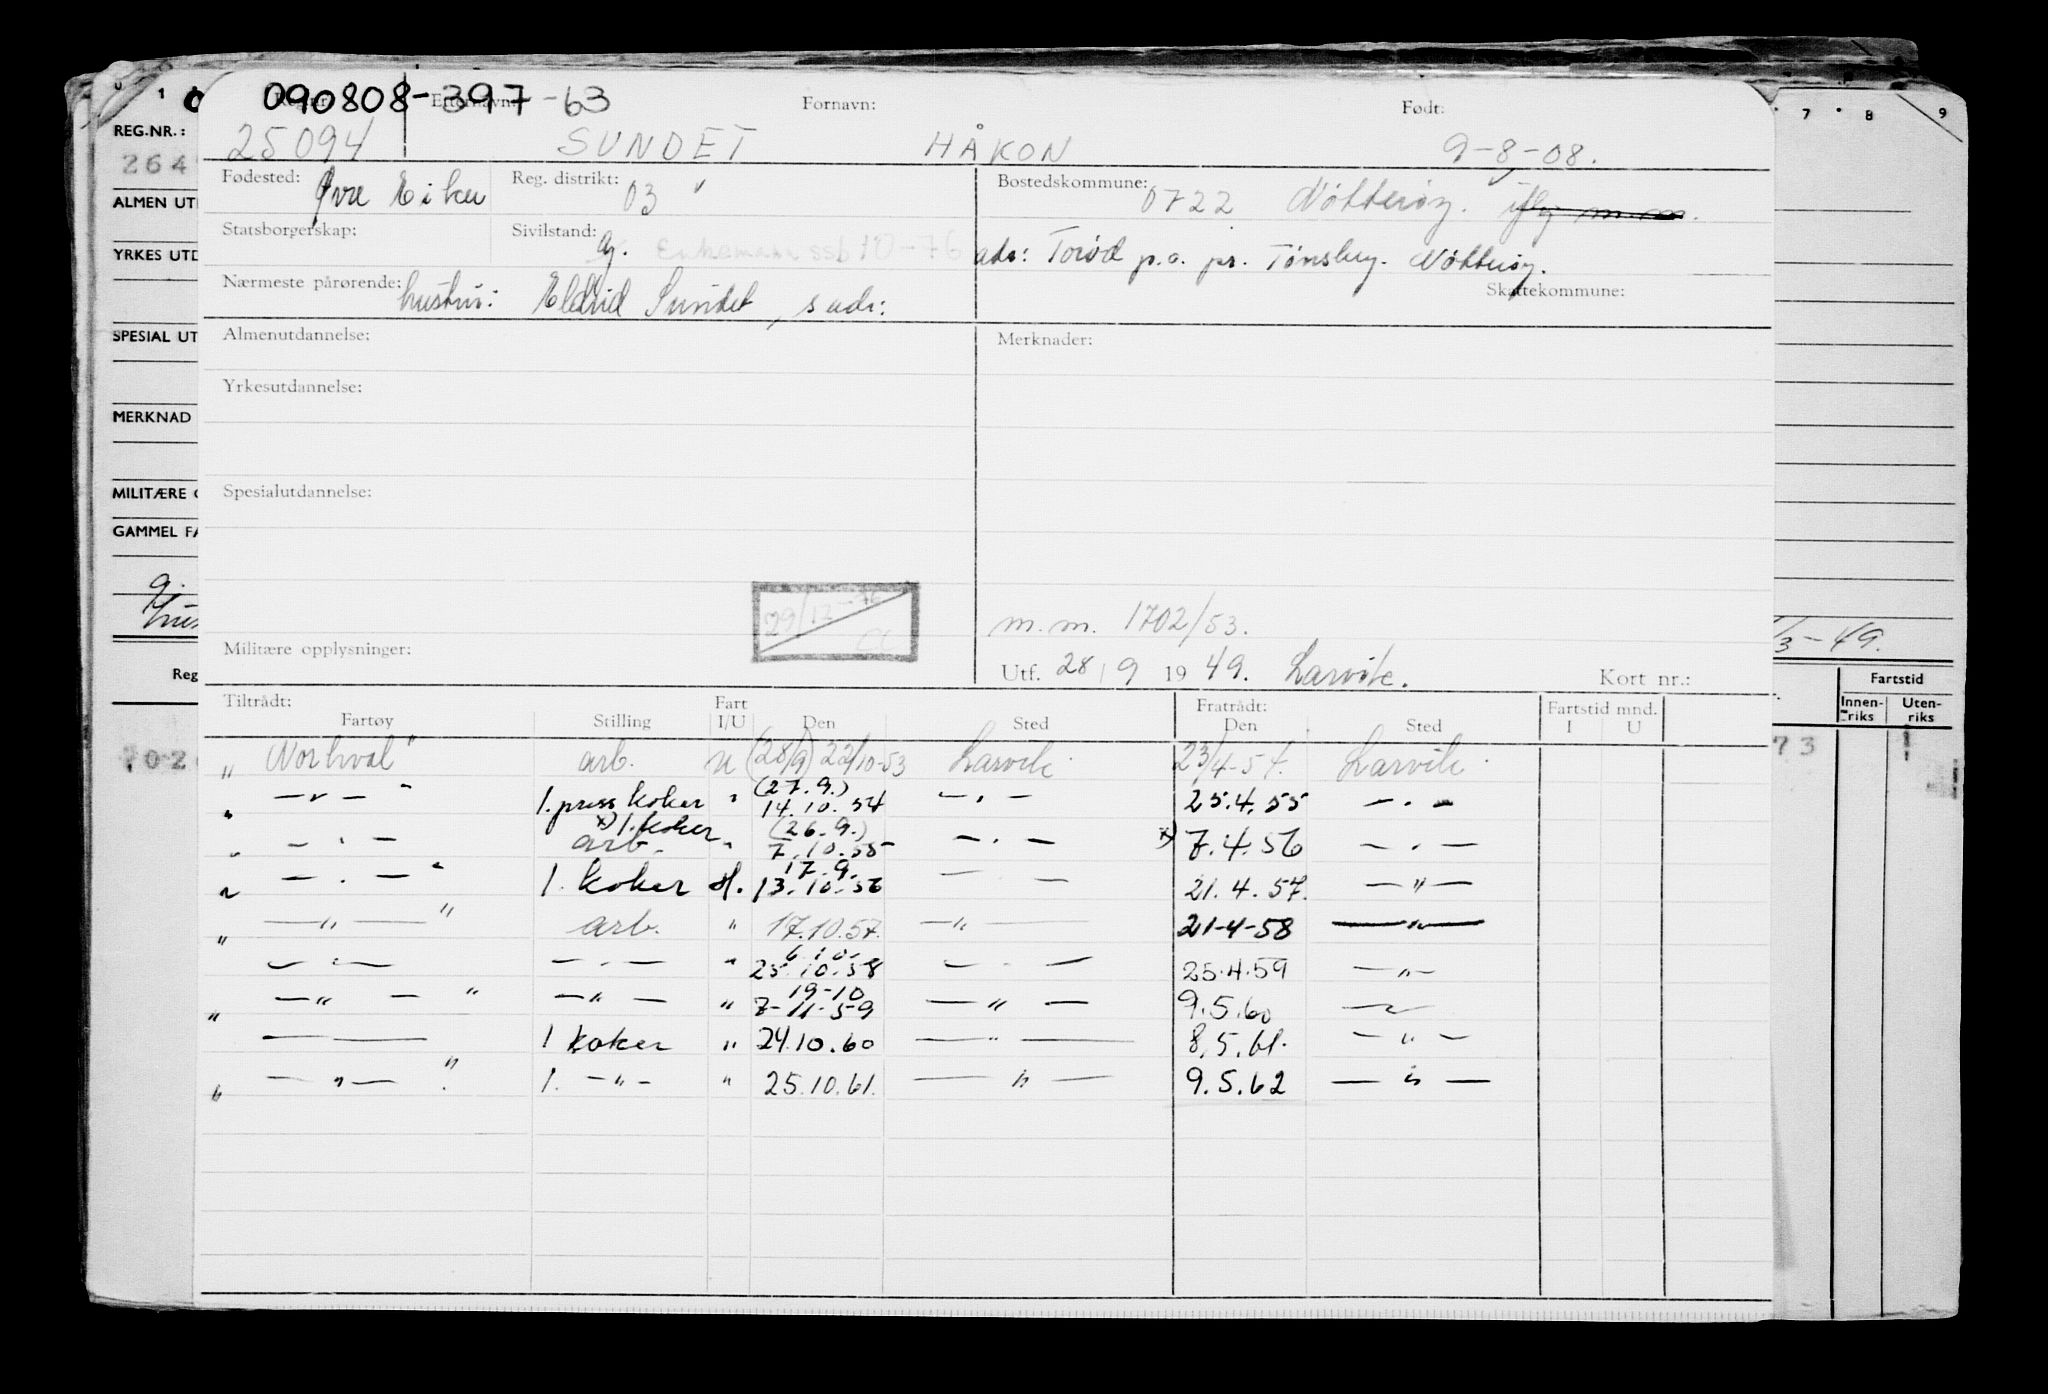 090808-397-63
Reg.nr. Etternavn: Fornavn: Født:
25094 SUNDET HÅKON 9-8-08.
Fødested: Øvre Eiker Reg. distrikt: 03 Bostedskommune: 0722 Nøtterøy.
Statsborgerskap: Sivilstand: g. Enkemann ssb 10-76 adr: Torød p.a. pr. Tønsberg. Nøtterøy.
Nærmeste pårørende: hustru: Eldrid Sundet, s adr: Skattekommune:
Almenutdannelse: Merknader:
Yrkesutdannelse:
Spesialutdannelse:
29/12-76
m.m. 1702/53.
Militære opplysninger: Utf. 28/9 1949. Larvik. Kort nr.:
Tiltrådt: Fart Fratrådt: Fartstid mnd.
Fartøy Stilling I/U Den Sted Den Sted I U
"Norhval" arb. u (28/9) 22/10-53 Larvik. 23/4-54. Larvik.
" — " — " 1. press koker " (27.9.) 14.10.54 — " — 25.4.55 — " —
" — " — x) 1. koker arb. " (26.9.) 7.10.55 — " — x) 7.4.56 — " —
" — " — " 1. koker U. 17.9. 13.10.56 — — 21.4.57. — " —
" — " — " arb. " 17.10.57. — " — 21-4-58 — " —
— " — — " — " 6.10. 25.10.58 — " — 25.4.59 — " —
" — " — " — " — " 19-10 7-11-59 — " — 9.5.60 — " —
— — 1 koker " 24.10.60 — " — 8.5.61. — " —
" — " — " 1. — " — " 25.10.61. — " — 9.5.62 — " —
0 1
REG.NR.:
264
ALMEN UT
YRKES UTD
SPESIAL UT
MERKNAD
MILITÆRE
GAMMEL FA
g.
Reg
702
7 8 9
3-49.
Fartstid
Innen-riks Uten-riks
73